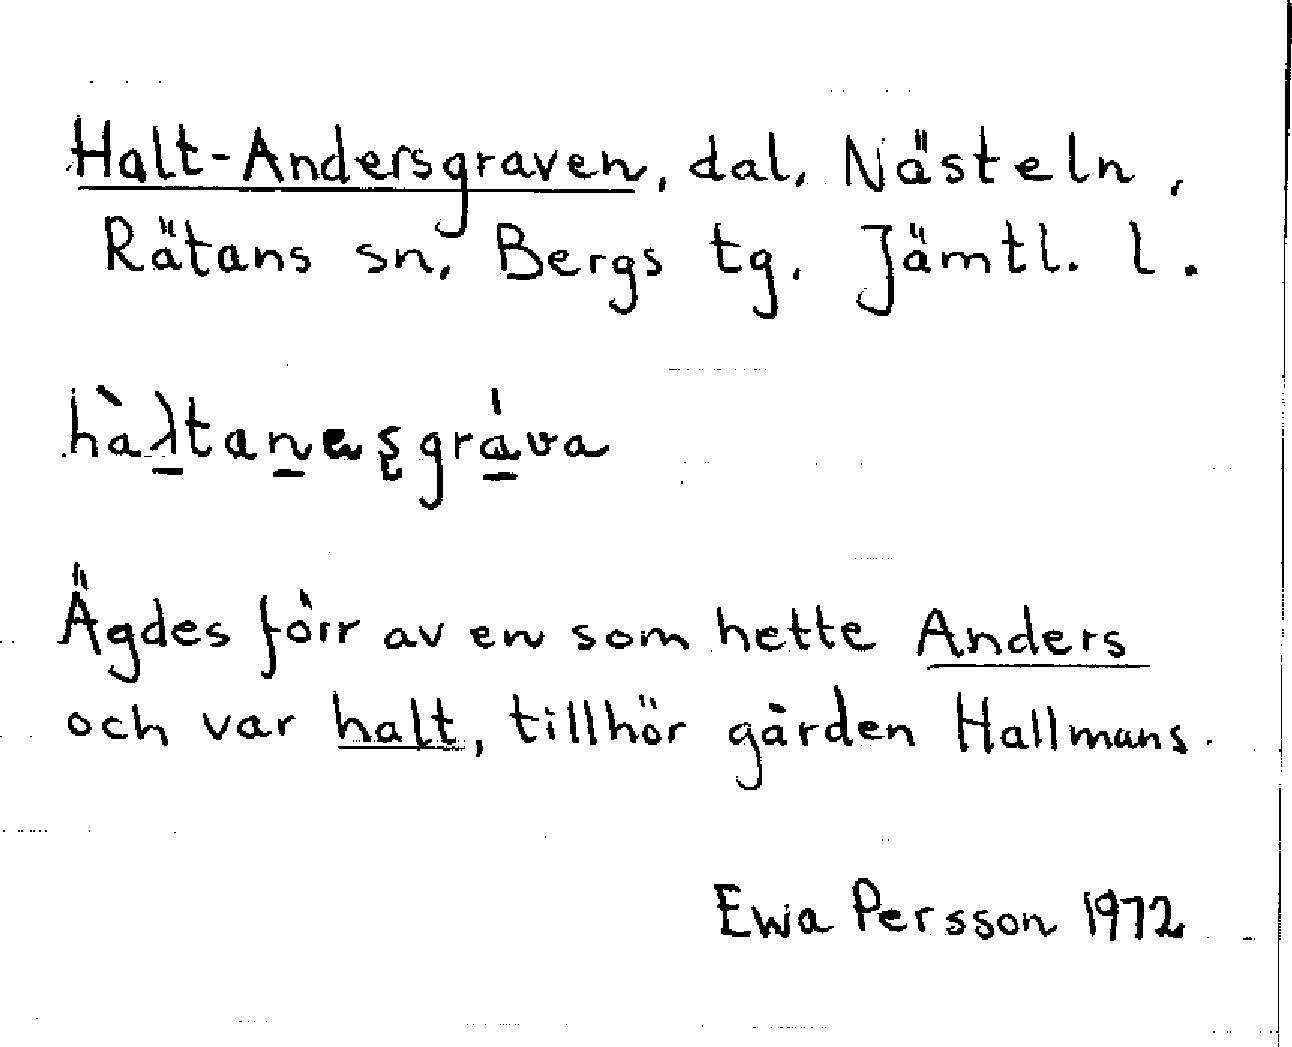 Halt-Andersgraven, dal, Nästeln,
Rätans sn, Bergs tg. Jämtl. l.
hàλ̠tan̠ɐʂgrá̠va
Ägdes förr av en som hette Anders
och var halt, tillhör gården Hallmans.
Ewa Persson 1972